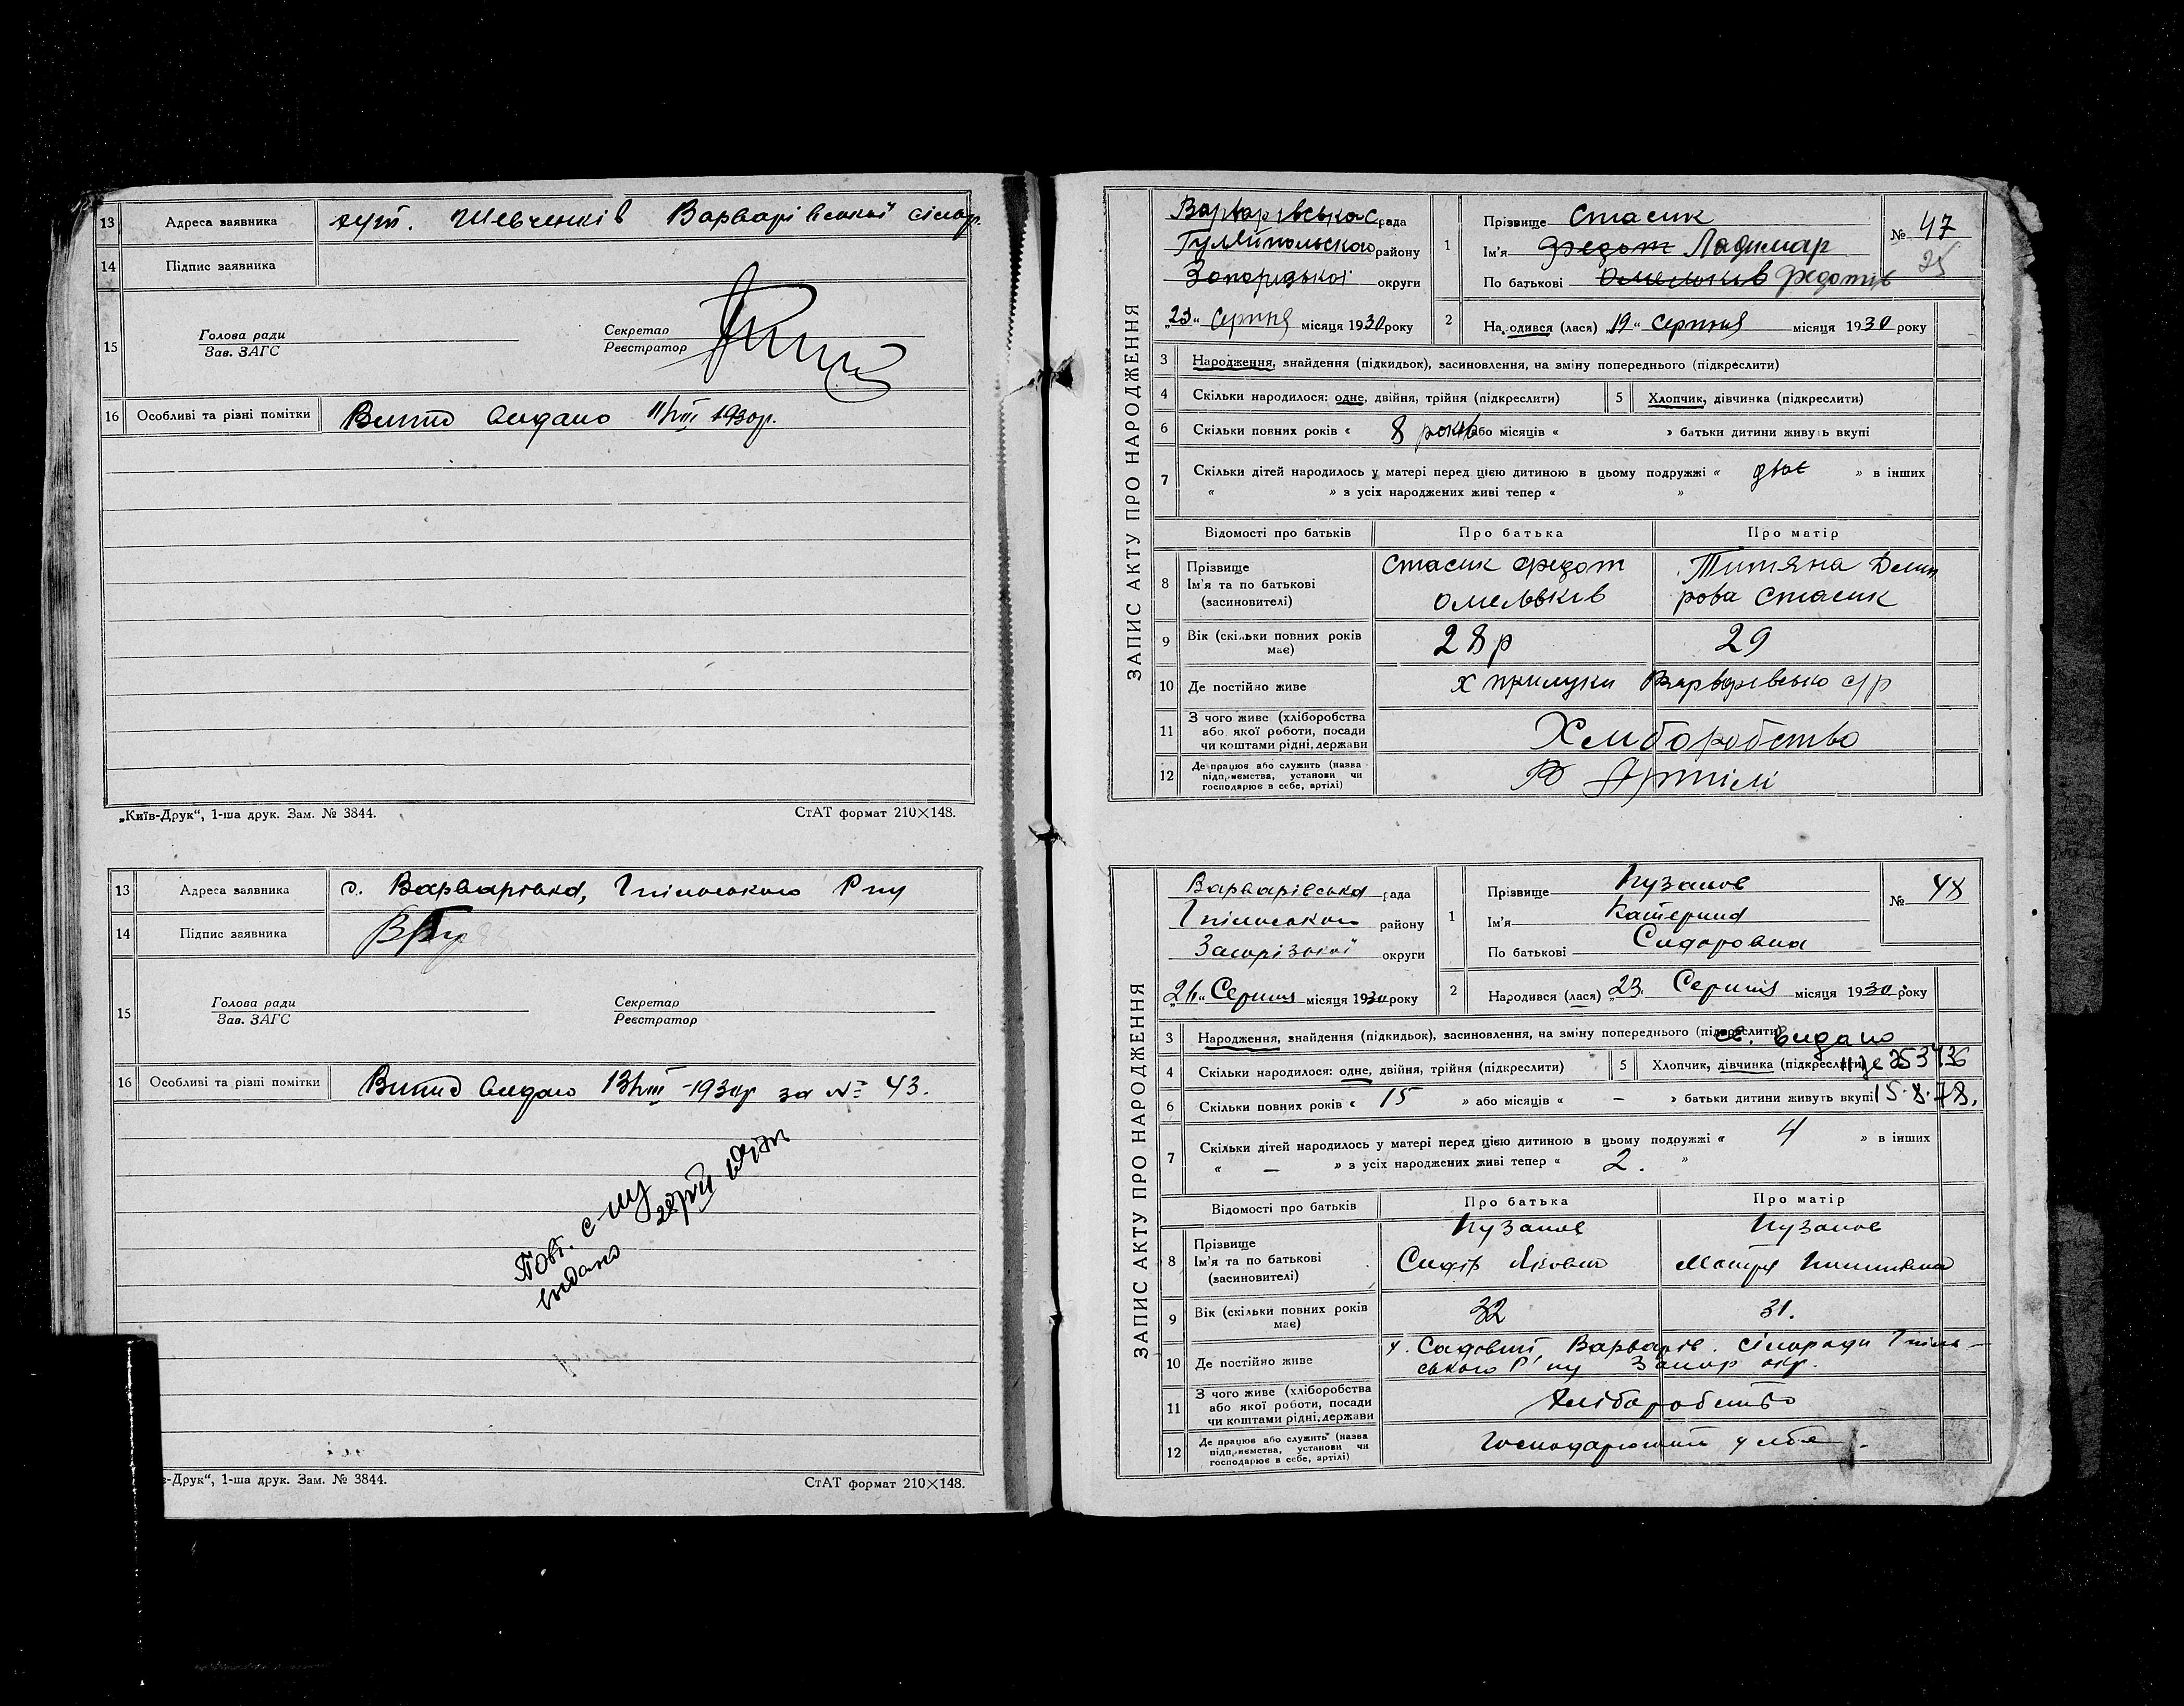 13 Адреса заявника хут. Шевченків Варварівської сільр.
14 Підпис заявника
15 Голова ради
Зав. ЗАГС
Секретар
Реєстратор
16 Особливі та різні помітки Витяг видано 11/VIII 1930р.
„Київ-Друк“, 1-ша друк. Зам. № 3844. СтАТ формат 210×148.
13 Адреса заявника с. Варварівка,
14 Підпис заявника
15 Голова ради
Зав. ЗАГС
Секретар
Реєстратор
16 Особливі та різні помітки Витяг видано 13/VIII-1930р за № 43.
Повт. с-му
видано
-Друк“, 1-ша друк. Зам. № 3844. СтАТ формат 210×148.
ЗАПИС АКТУ ПРО НАРОДЖЕННЯ
Варварівська с рада
Гуляйпольского району
Запорізької округи
„23“ Серпня місяця 1930 року
1 Прізвище Стасик
Ім'я Федот Ладимар
По батькові Омельків Федотів
№ 47
25
2 Народився (лася) „19“ серпня місяця 1930 року
3 Народження, знайдення (підкидьок), засиновлення, на зміну попереднього (підкреслити)
4 Скільки народилося: одне, двійня, трійня (підкреслити) 5 Хлопчик, дівчинка (підкреслити)
6 Скільки повних років « 8 років або місяців « » батьки дитини живуть вкупі
7 Скільки дітей народилось у матері перед цією дитиною в цьому подружжі « двое » в інших
« » з усіх народжених живі тепер « »
Відомості про батьків Про батька Про матір
8 Прізвище
Ім'я та по батькові
(засиновителі)
Стасик Федот
Омельвків
Титяна Дмит
рова Стасик
9 Вік (скільки повних років
має) 28р 29
10 Де постійно живе х прилуки Варварівсько с/р
11 З чого живе (хліборобства
або якої роботи, посади
чи коштами рідні, держави
Хлиборобство
12 Де працює або служить (назва
підприємства, установи чи
господарює в себе, артілі)
В Артілі
ЗАПИС АКТУ ПРО НАРОДЖЕННЯ
Варварівська рада
району
Запорізької округи
„26“ Серпня місяця 1930 року
1 Прізвище Пузанов
Ім'я Катерина
По батькові Сидоровна
№ 48
2 Народився (лася) „23. Серпня місяця 1930 року
3 Народження, знайдення (підкидьок), засиновлення, на зміну попереднього (підкреслити)
св. видано
4 Скільки народилося: одне, двійня, трійня (підкреслити) 5 Хлопчик, дівчинка (підкреслити)
6 Скільки повних років « 15 » або місяців « — » батьки дитини живуть вкупі 15.8.78.
7 Скільки дітей народилось у матері перед цією дитиною в цьому подружжі « 4 » в інших
« — » з усіх народжених живі тепер « 2. »
Відомості про батьків Про батька Про матір
8 Прізвище
Ім'я та по батькові
(засиновителі)
Пузанов
Сидір Якович
Пузанов
9 Вік (скільки повних років
має) 32 31.
10 Де постійно живе х. Садовий, Варварів. сільради
ського Р'ну Запор окр.
11 З чого живе (хліборобства
або якої роботи, посади
чи коштами рідні, держави
Хліборобство
12 Де працює або служить (назва
підприємства, установи чи
господарює в себе, артілі)